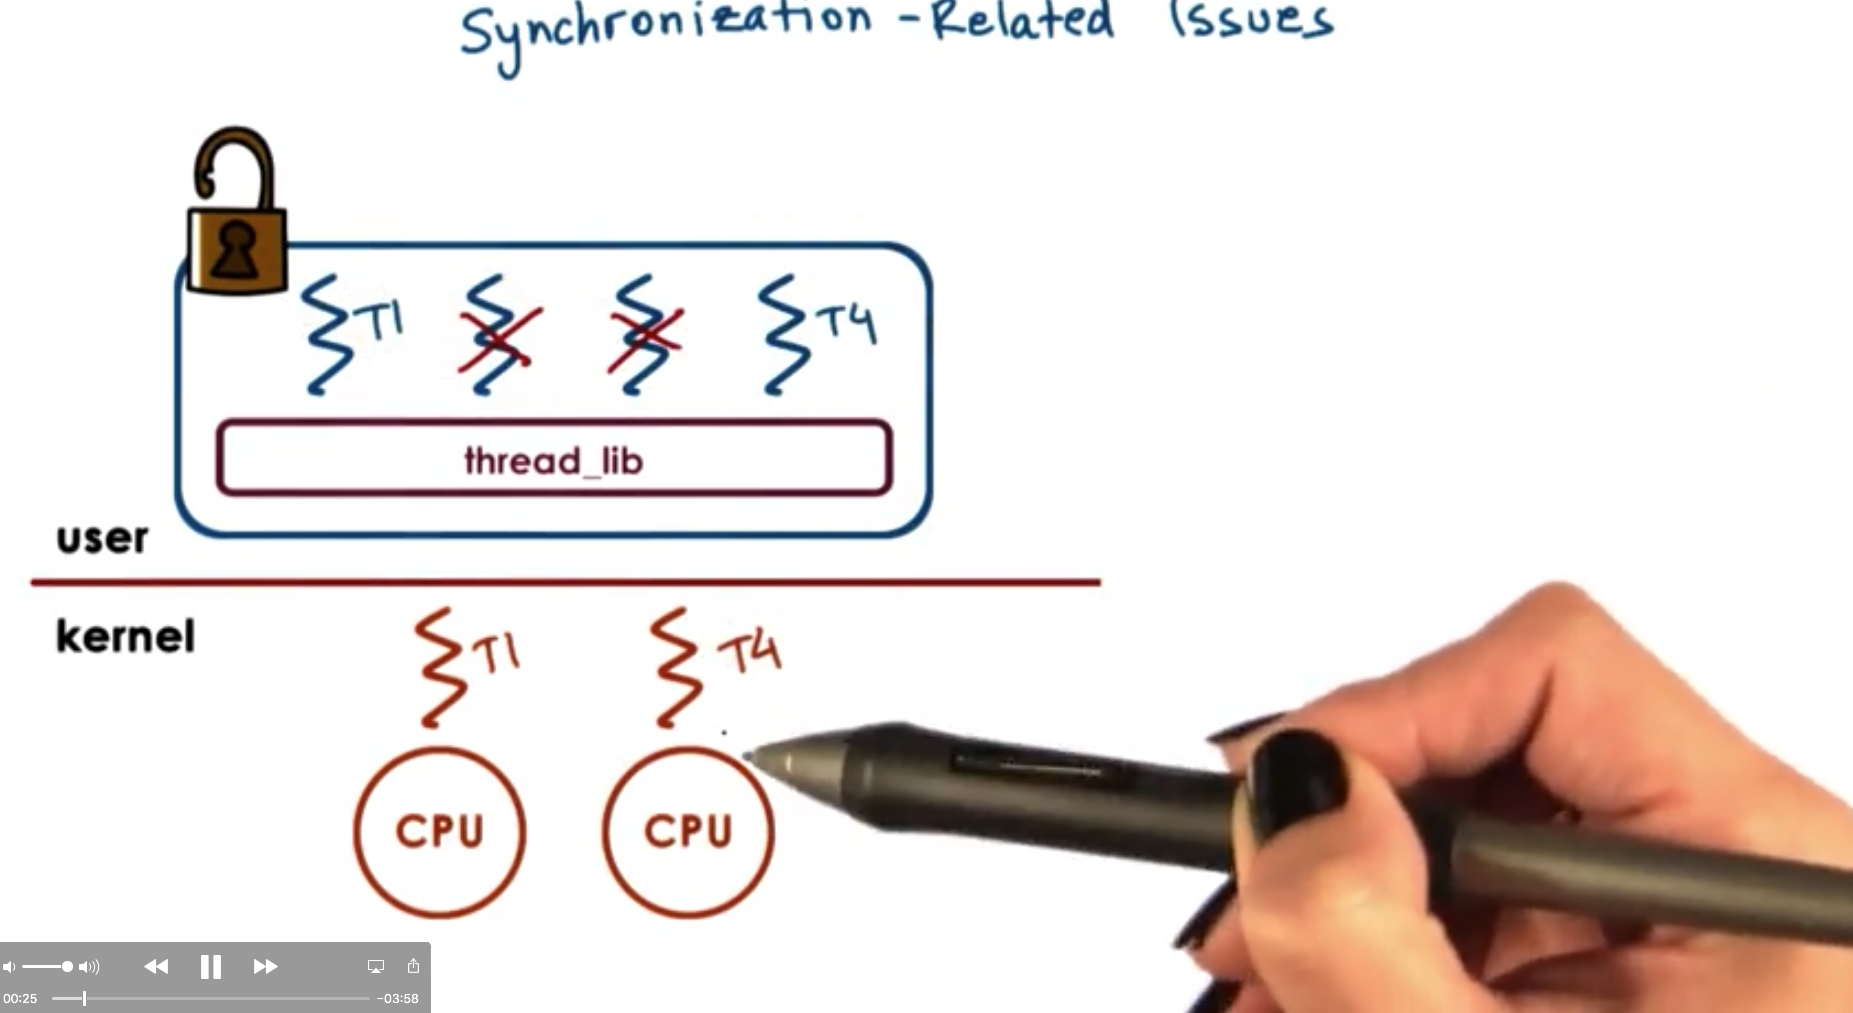 Synchronization - Related Issues
T1 T4
thread_lib
user
kernel
T1 T4
CPU CPU
00:25 -03:58